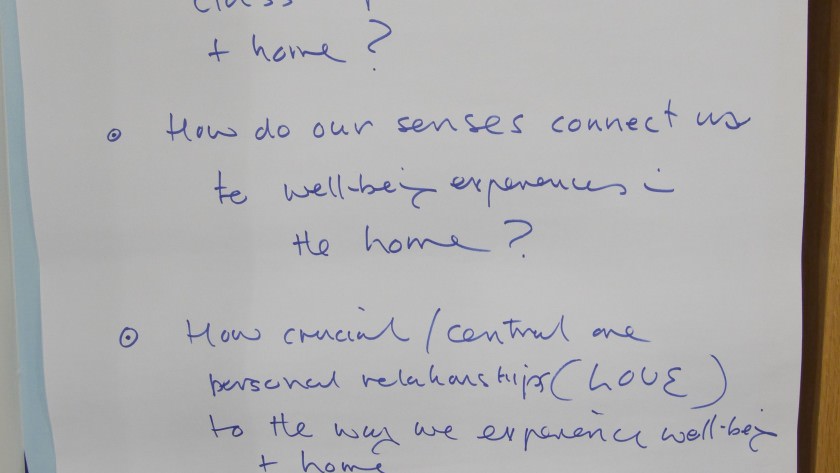 class
+ home?
⊙ How do our senses connect us
to well-being experiences in
the home?
⊙ How crucial/central are
personal relationships (LOVE)
to the way we experience well-being
+ home